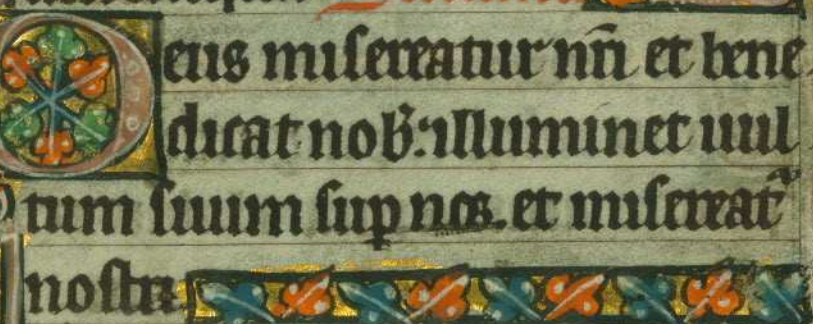 Deus misereatur nr̄i et bene
dicat nob̄: illuminet uul
tum suum sup nos. et misereat᷑
nostri